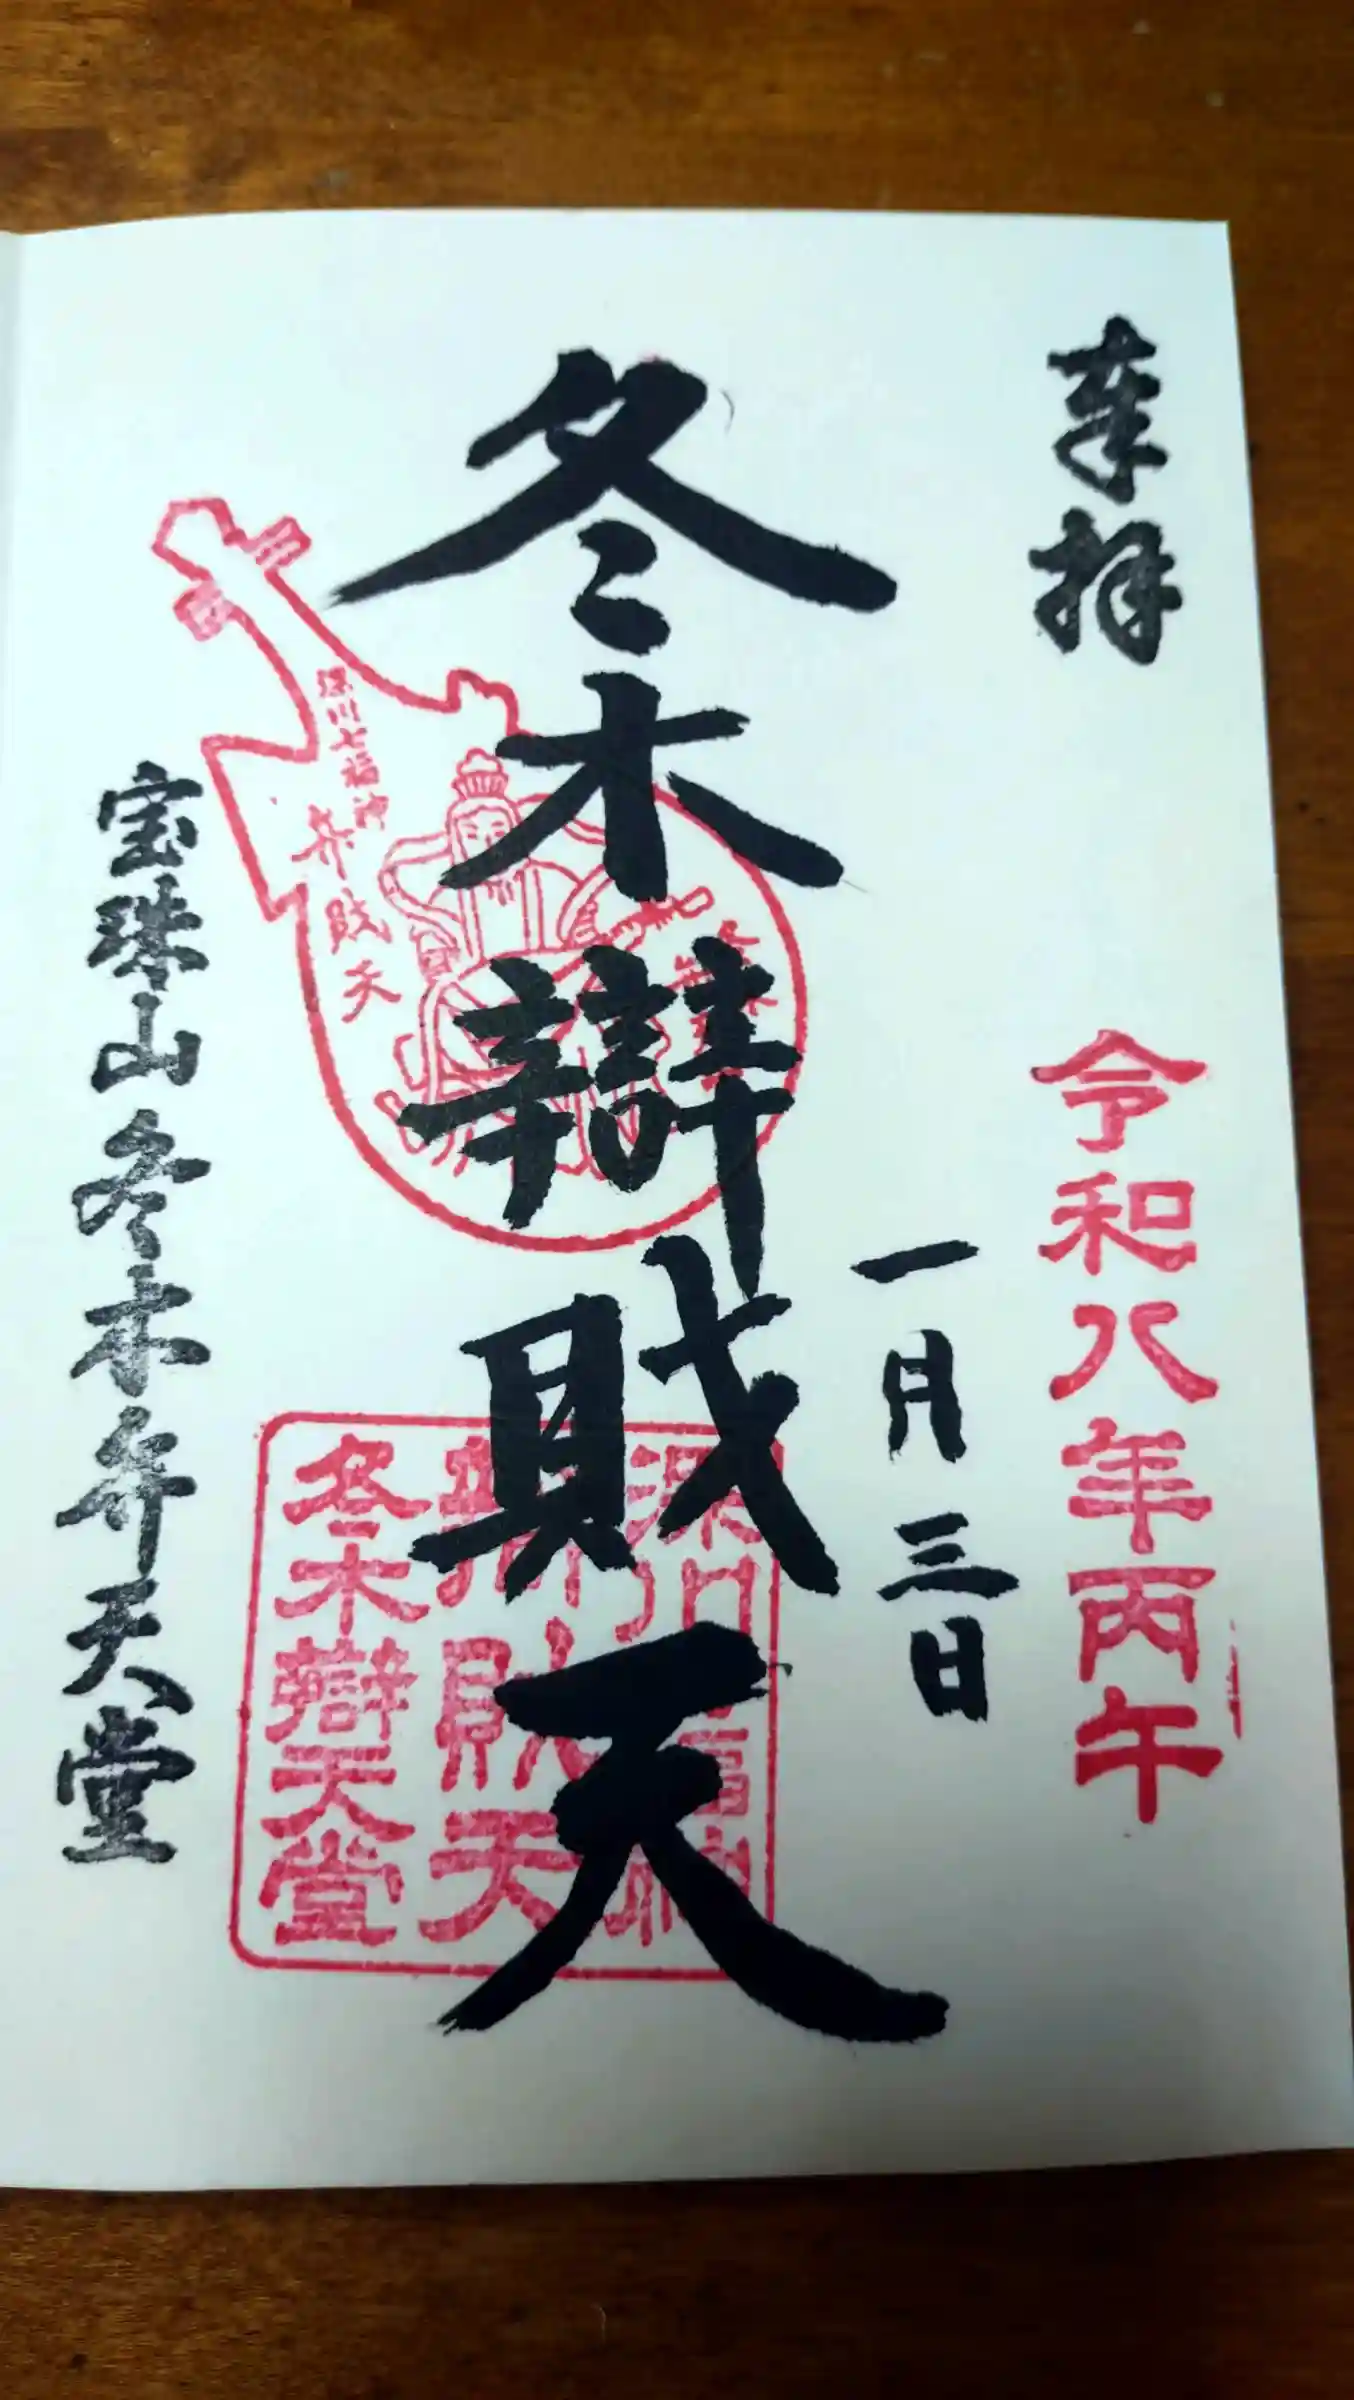 奉拝
令和八年丙午
一月三日
冬木辯財天
深川七福神
弁財天
深川七福神
辯財天
冬木辯天堂
宝珠山冬木弁天堂